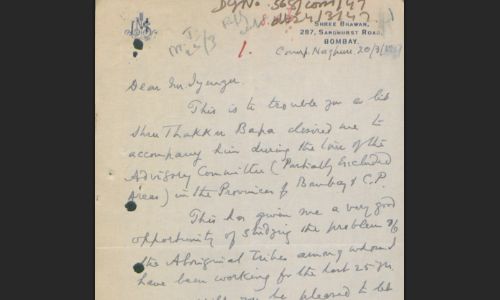 D.y No. 563/Com/47
24/3/47
SHREE BHAWAN,
287, SANDHURST ROAD,
BOMBAY.
1.
Camp. Nagpur. 20/3/
Dear Mr. Iyengar
This is to trouble you a bit
Shri Thakkar Bapa desired me to
accompany him during the tour of the
Advisory Committee (Partially Excluded
Areas) in the Provinces of Bombay & C.P.
This has given me a very good
opportunity of studying the problem of
the Aboriginal Tribes among whom I
have been working for the last 25 yrs.
you be pleased to let